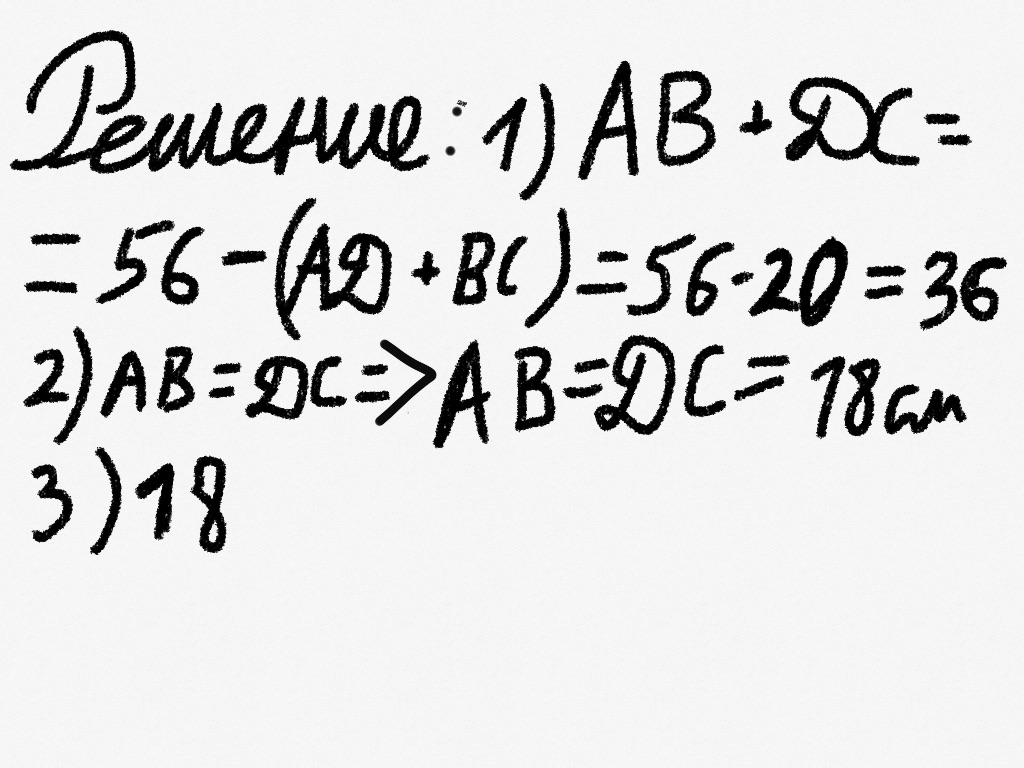 Решение: 1) AB + DC =
= 56 - (AD + BC) = 56 - 20 = 36
2) AB = DC => AB = DC = 18 см
3) 18